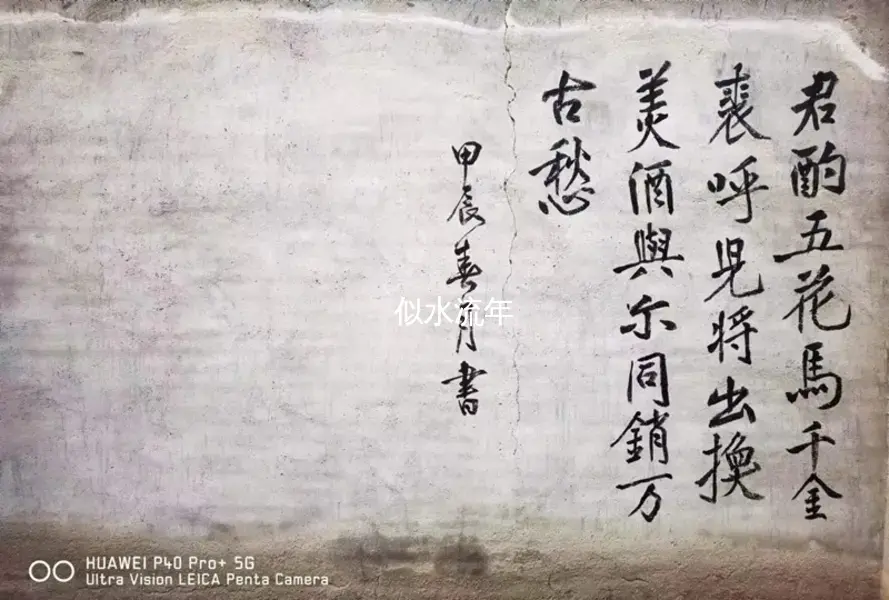 君酌五花馬千金
裘呼児将出換
美酒與尓同銷万
古愁
甲辰春月書
似水流年
HUAWEI P40 Pro+ 5G
Ultra Vision LEICA Penta Camera